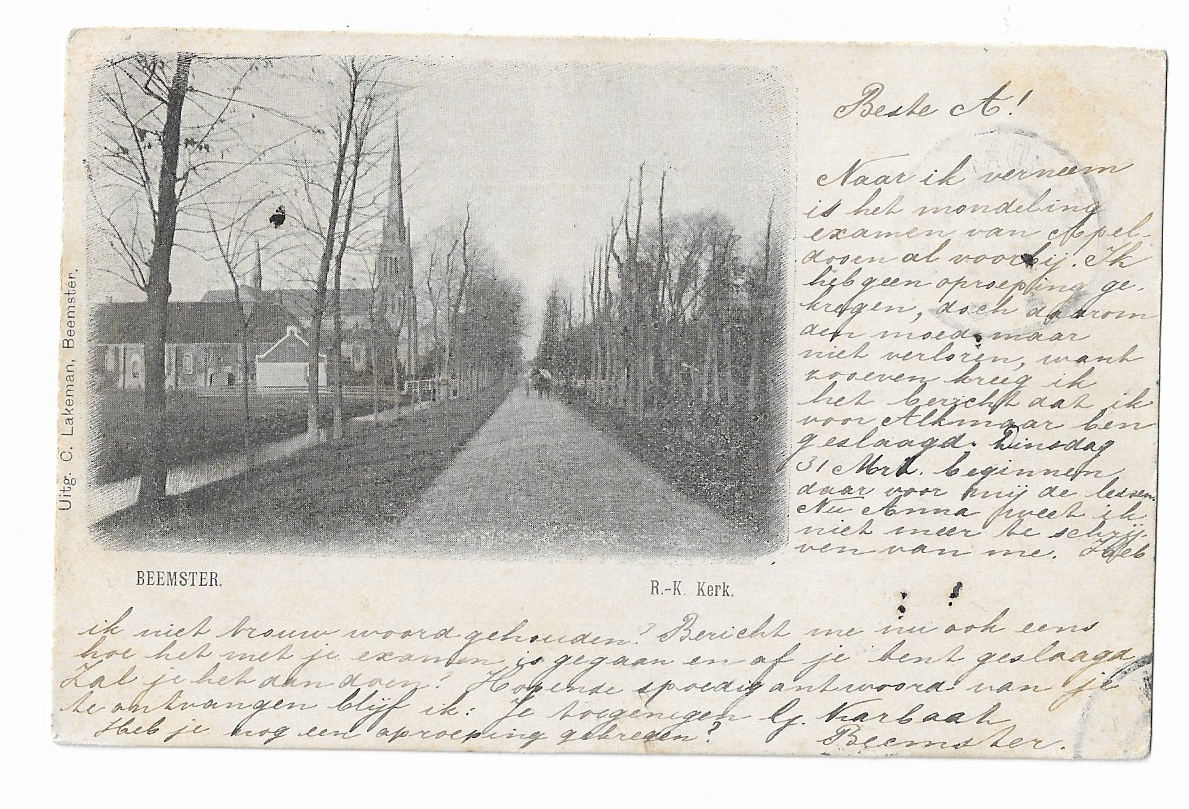 Beste A!
Naar ik verneem
is het mondeling
examen van Apel-
doorn al voorbij. Ik
heb geen oproeping ge-
kregen, doch daarom
den moed maar
niet verloren, want
zooeven kreeg ik
het bericht dat ik
voor Alkmaar ben
geslaagd. Dinsdag
31 Mrt. beginnen
daar voor mij de lessen.
Nu Anna weet ik
niet meer te schrij-
ven van me. Heb
Uitg. C. Lakeman, Beemster.
BEEMSTER.
R.-K. Kerk.
ik niet trouw woord gehouden? Bericht me nu ook eens
hoe het met je examen is gegaan en of je bent geslaagd
Zal je het dan doen? Hopende spoedig antwoord van je
te ontvangen blijf ik: Je toegenegen G.
Heb je nog een oproeping gekregen?
Beemster.